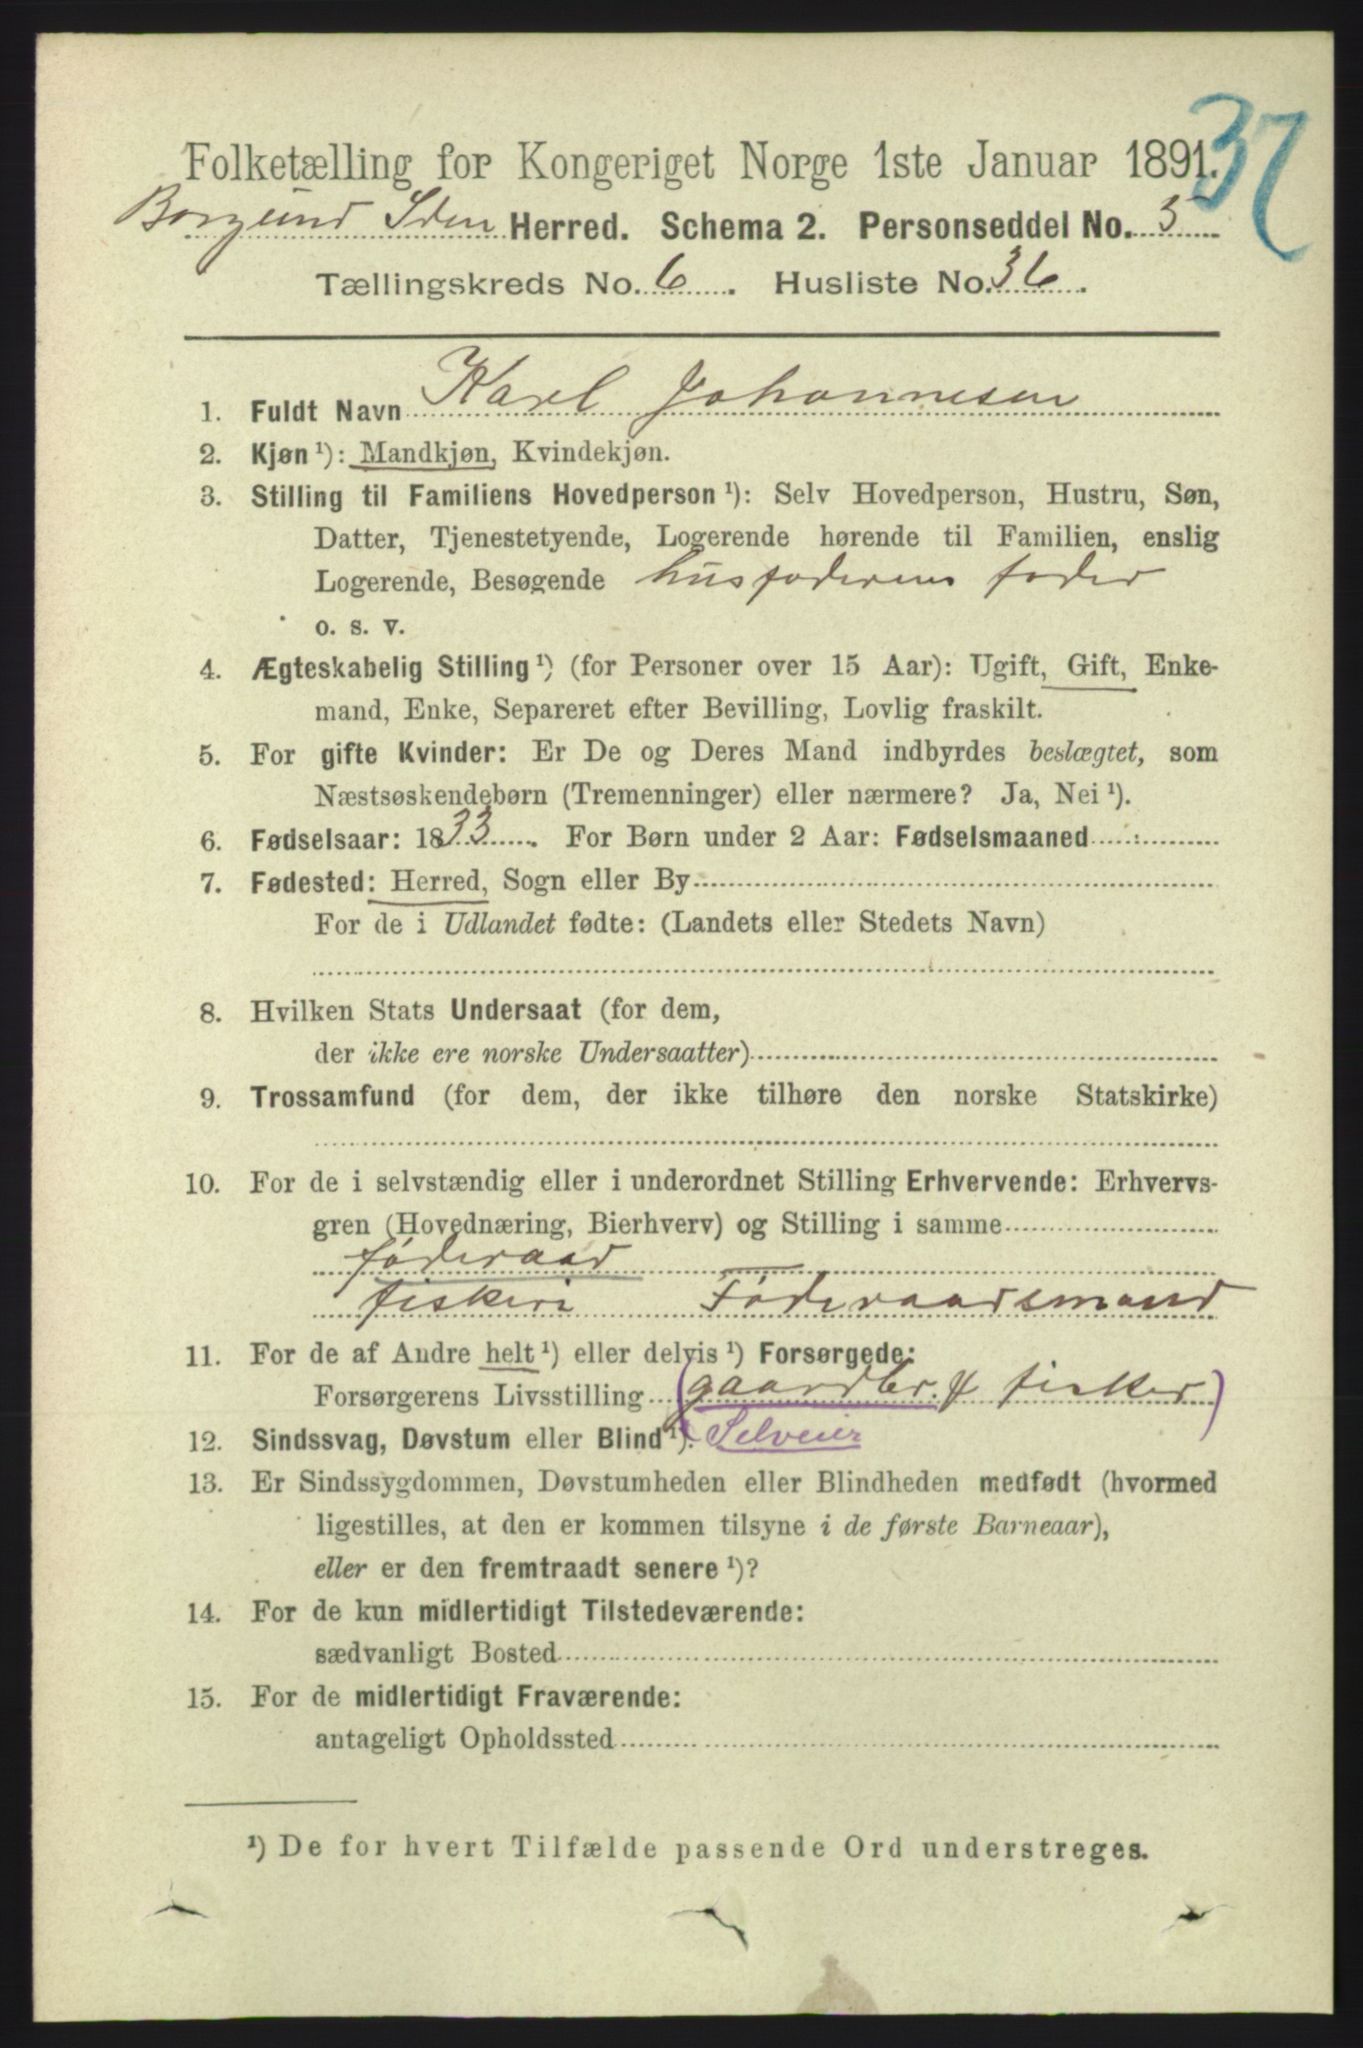 37
Folketælling for Kongeriget Norge 1ste Januar 1891.
Borgund Herred. Schema 2. Personseddel No. 5
Tællingskreds No. 6. Husliste No. 36.
1. Fuldt Navn Karl Johannesen
2. Kjøn ¹): Mandkjøn, Kvindekjøn.
3. Stilling til Familiens Hovedperson ¹): Selv Hovedperson, Hustru, Søn,
Datter, Tjenestetyende, Logerende hørende til Familien, enslig
Logerende, Besøgende husfaderens fader
o. s. v.
4. Ægteskabelig Stilling ¹) (for Personer over 15 Aar): Ugift, Gift, Enke-
mand, Enke, Separeret efter Bevilling, Lovlig fraskilt.
5. For gifte Kvinder: Er De og Deres Mand indbyrdes beslægtet, som
Næstsøskendebørn (Tremenninger) eller nærmere? Ja, Nei ¹).
6. Fødselsaar: 1833. For Børn under 2 Aar: Fødselsmaaned
7. Fødested: Herred, Sogn eller By
For de i Udlandet fødte: (Landets eller Stedets Navn)
8. Hvilken Stats Undersaat (for dem,
der ikke ere norske Undersaatter)
9. Trossamfund (for dem, der ikke tilhøre den norske Statskirke)
10. For de i selvstændig eller i underordnet Stilling Erhvervende: Erhvervs-
gren (Hovednæring, Bierhverv) og Stilling i samme
føderaad
fiskeri Føderaadsmand
11. For de af Andre helt ¹) eller delvis ¹) Forsørgede:
Forsørgerens Livsstilling (gaardbr. & fisker)
12. Sindssvag, Døvstum eller Blind ¹). Selveier
13. Er Sindssygdommen, Døvstumheden eller Blindheden medfødt (hvormed
ligestilles, at den er kommen tilsyne i de første Barneaar),
eller er den fremtraadt senere ¹)?
14. For de kun midlertidigt Tilstedeværende:
sædvanligt Bosted
15. For de midlertidigt Fraværende:
antageligt Opholdssted
¹) De for hvert Tilfælde passende Ord understreges.